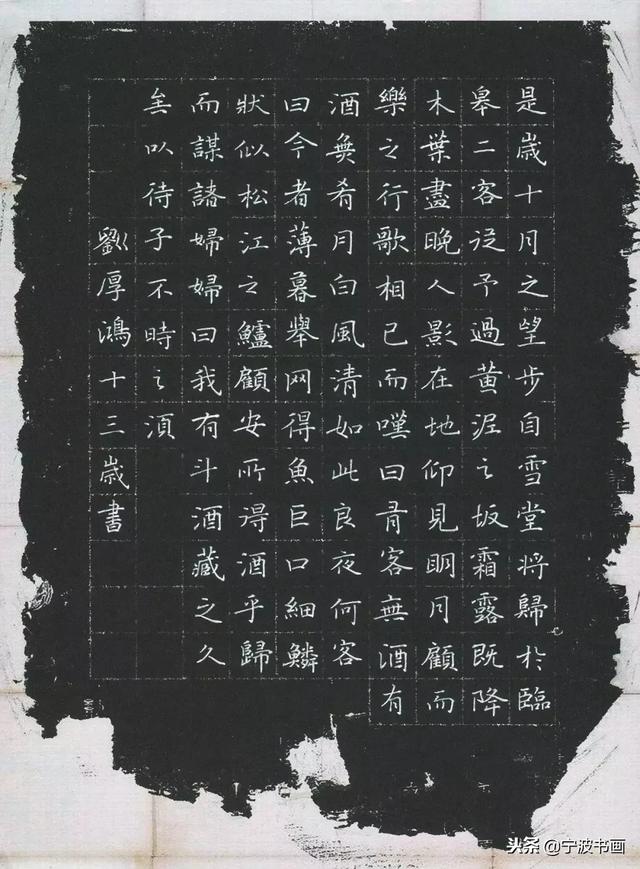 是歲十月之望步自雪堂將歸於臨
皋二客從予過黄泥之坂霜露既降
木葉盡晚人影在地仰見明月顧而
樂之行歌相已而嘆曰有客無酒有
酒無肴月白風清如此良夜何客
曰今者薄暮舉网得魚巨口細鱗
狀似松江之鱸顧安所得酒乎歸
而謀諸婦婦曰我有斗酒藏之久
矣以待子不時之須
劉厚鴻十三歲書
头条 @宁波书画